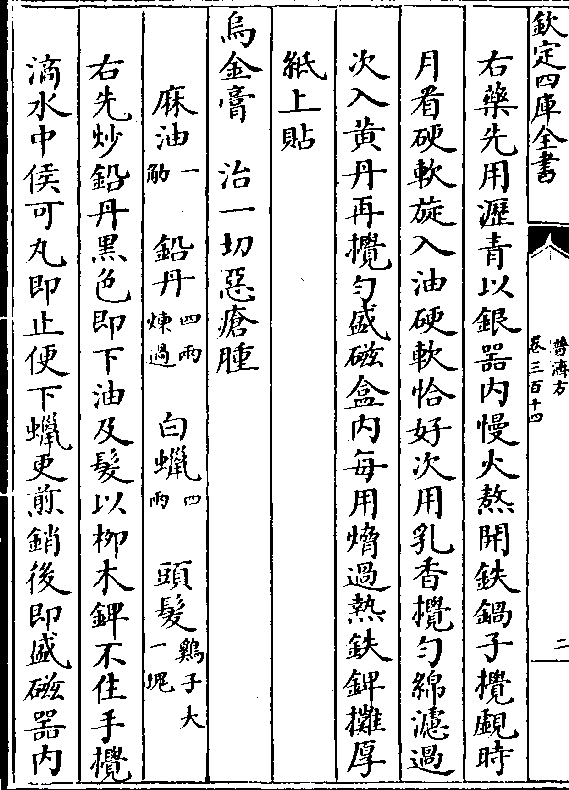 欽定四庫全書
普濟方
卷三百十四
二
右藥先用瀝青以銀器内慢火熬開鉄鍋子攪覷時
月看硬軟旋入油硬軟恰好次用乳香攪勻綿濾過
次入黄丹再攪勻盛磁盒内每用熁過熱鉄鎞攤厚
紙上貼
烏金膏　治一切惡瘡腫
麻油一觔　鉛丹四兩煉過　白蠟四兩　頭髮鷄子大一塊
右先炒鉛丹黑色即下油及髮以栁木鎞不住手攪
滴水中俟可丸即止便下蠟更煎銷後即盛磁器内